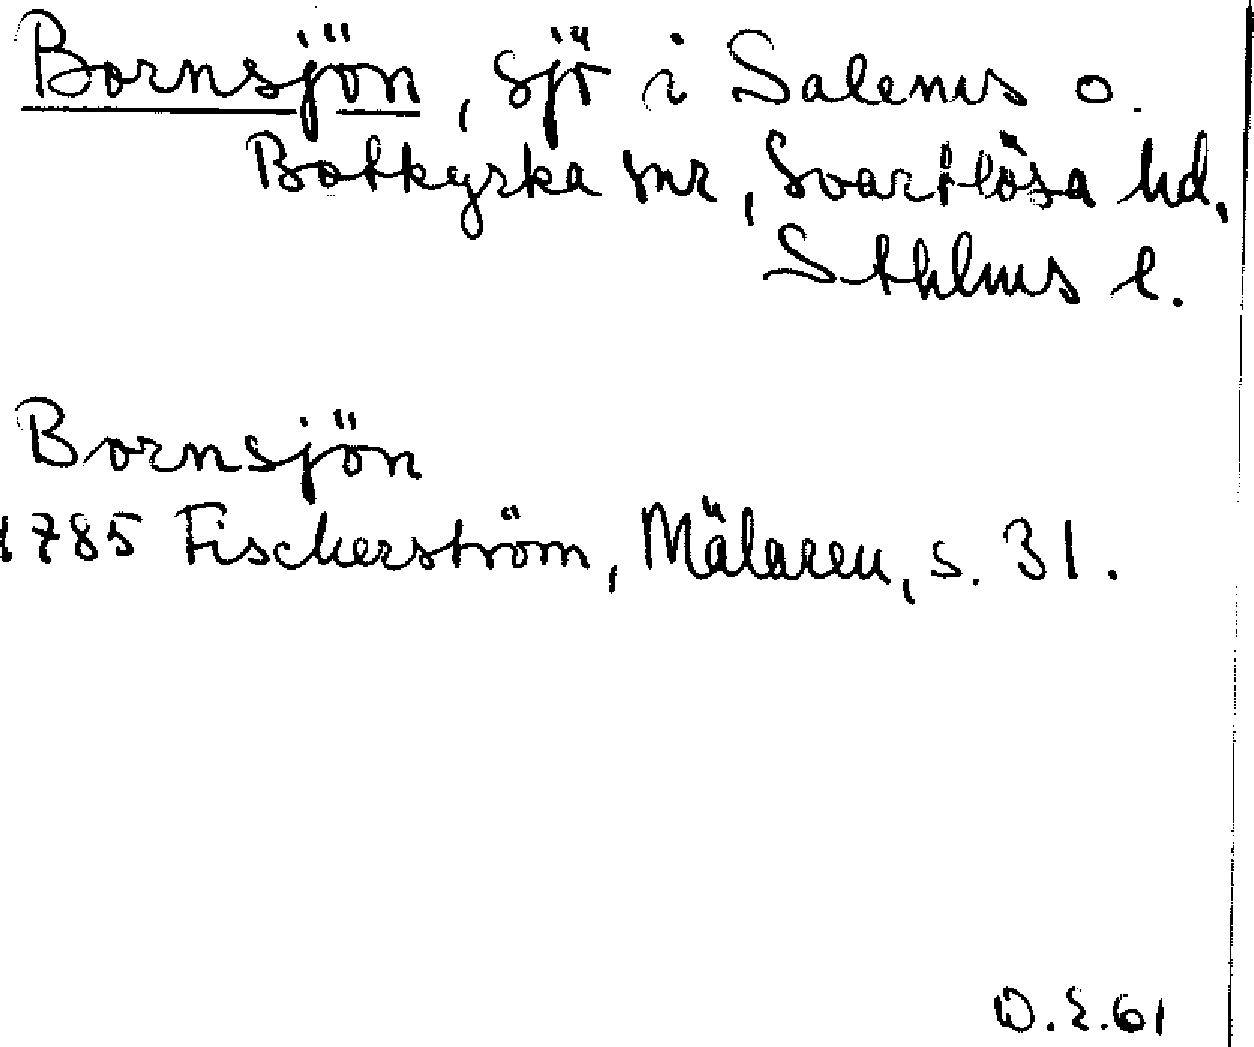 Bornsjön, sjö i Salems o.
Botkyrka snr, Svartlösa hd,
Sthlms l.
Bornsjön
1785 Fischerström, Mälaren, s. 31.
O.E.61